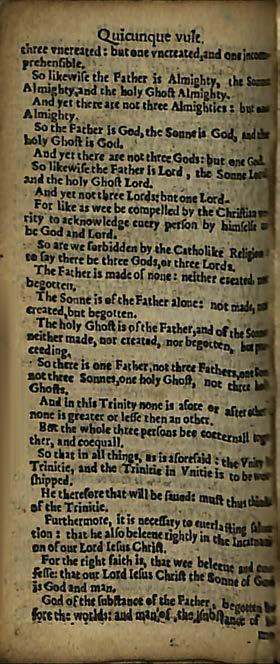 Quicunque vult.
three vncreated: but one vncreated, and one incom-
prehensible.
So likewise the Father is Almighty, the Sonne
Almighty, and the holy Ghost Almighty.
And yet there are not three Almighties: but one
Almighty.
So the Father is God, the Sonne is God, and the
holy Ghost is God.
And yet there are not three Gods: but one God.
So likewise the Father is Lord, the Sonne Lord
and the holy Ghost Lord.
And yet not three Lords: but one Lord.
For like as wee be compelled by the Christian
rity to acknowledge euery person by himselfe
be God and Lord.
So are we forbidden by the Catholike Religion
to say there be three Gods, or three Lords.
The Father is made of none: neither created
begotten.
The Sonne is of the Father alone: not made,
created, but begotten.
The holy Ghost is of the Father, and of the Sonne
neither made, nor created, nor begotten, but
ceeding.
So there is one Father, not three Fathers, one
not three Sonnes, one holy Ghost, not three
Ghosts.
And in this Trinity none is afore or after other
none is greater or lesse then an other.
But the whole three persons bee coeternall
ther, and coequall.
So that in all things, as is aforesaid: the Vnity
Trinitie, and the Trinitie in Vnitie is to be
shipped.
He therefore that will be saued: must thus
of the Trinitie.
Furthermore, it is necessary to euerlasting
tion: that he also beleeue rightly in the
on of our Lord Iesus Christ.
For the right faith is, that wee beleeue and
fesse: that our Lord Iesus Christ the Sonne of
is God and man.
God of the substance of the Father, begotten
fore the worlds: and man of the substance of